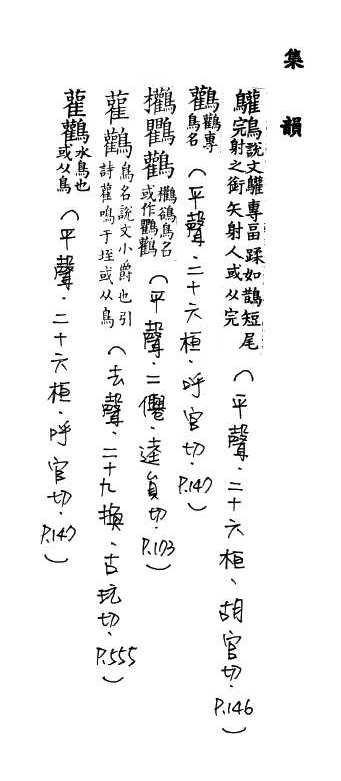 集韻
鸛鳥完說文鸛專畐蹂如䧿短尾射之銜矢射人或从完(平聲.二十六桓、胡官切.P.146)
鸛鸛專鳥名(平聲.二十六桓.呼官切.P.147)
欋鸜鸛欋鵒鳥名或作鸜鸛(平聲.二僊.逵員切.P.173)
雚鸛鳥名說文小爵也引詩雚鳴于垤或从鳥(去聲.二十九換.古玩切.P.555)
雚鸛水鳥也或从鳥(平聲.二十六桓.呼官切.P.147)